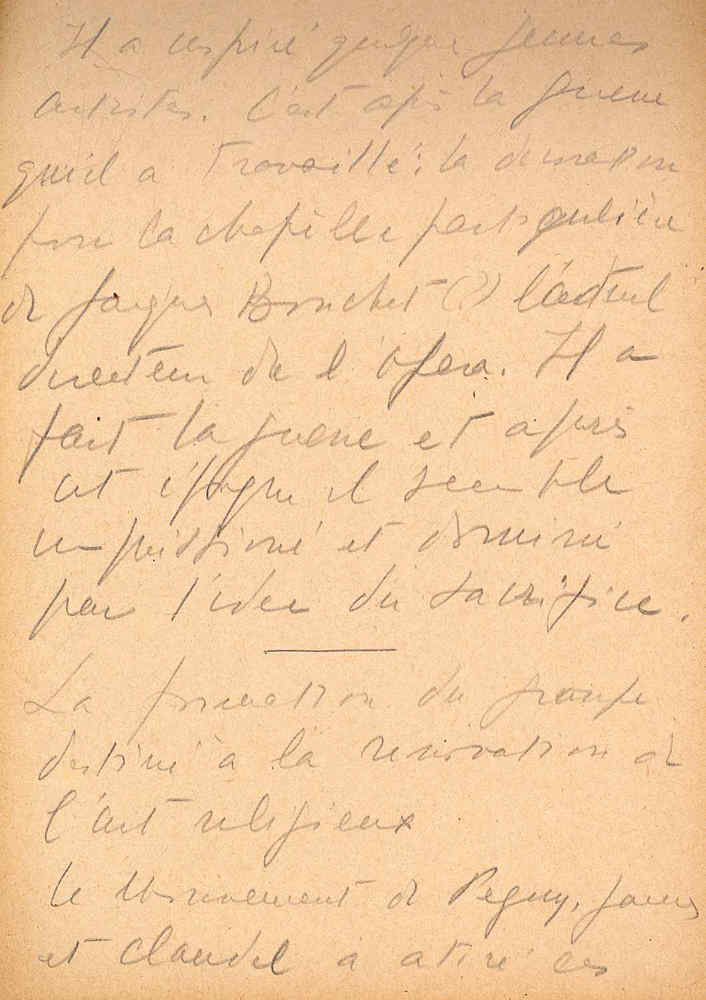 Il a inspiré quelques jeunes
artistes. C'est après la guerre
qu'il a travaillé; la décoration
pour la chapelle particulière
de Jacques Brouchet (?) l'actuel
directeur de l'opera. Il a
fait la guerre et après
cet époque il semble
impressioné et dominé
par l'idee du sacrifice.
La formation du groupe
destiné à la renovation de
l'art religieux
le Mouvement de Peguy, James
et Claudel a atiré ces